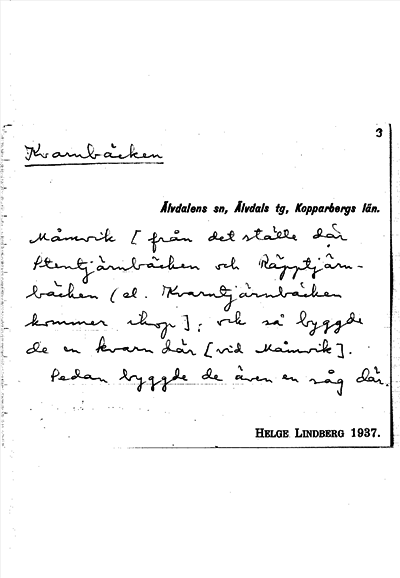 3
Kvarnbäcken
Älvdalens sn, Älvdals tg, Kopparbergs län.
Måmvik [från det ställe där
Stentjärnbäcken och Räpptjärn-
bäcken (el. Kvarntjärnbäcken
kommer ihop]; och så byggde
de en kvarn där [vid Måmvik].
Sedan byggde de även en såg där.
HELGE LINDBERG 1937.